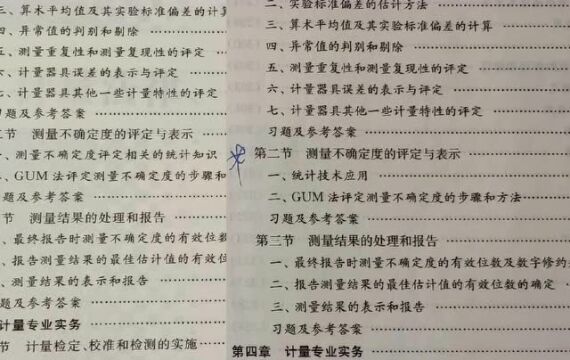 三、算术平均值及其实验标准偏差的计算
四、异常值的判别和剔除
五、测量重复性和测量复现性的评定
六、计量器具误差的表示与评定
七、计量器具其他一些计量特性的评定
习题及参考答案
二节 测量不确定度的评定与表示
一、测量不确定度评定相关的统计知识
二、GUM法评定测量不确定度的步骤和
节 测量结果的处理和报告
、最终报告时测量不确定度的有效位数
、报告测量结果的最佳估计值的有效位
、测量结果的表示和报告
习题及参考答案
计量专业实务
节 计量检定、校准和检测的实施
二、实验标准偏差的估计方法
三、算术平均值及其实验标准偏差的计算
四、异常值的判别和剔除
五、测量重复性和测量复现性的评定
六、计量器具误差的表示与评定
七、计量器具其他一些计量特性的评定
习题及参考答案
第二节 测量不确定度的评定与表示
一、统计技术应用
二、GUM法评定测量不确定度的步骤和方法
习题及参考答案
第三节 测量结果的处理和报告
一、最终报告时测量不确定度的有效位数及数字修约
二、报告测量结果的最佳估计值的有效位数的确定
三、测量结果的表示和报告
习题及参考答案
第四章 计量专业实务